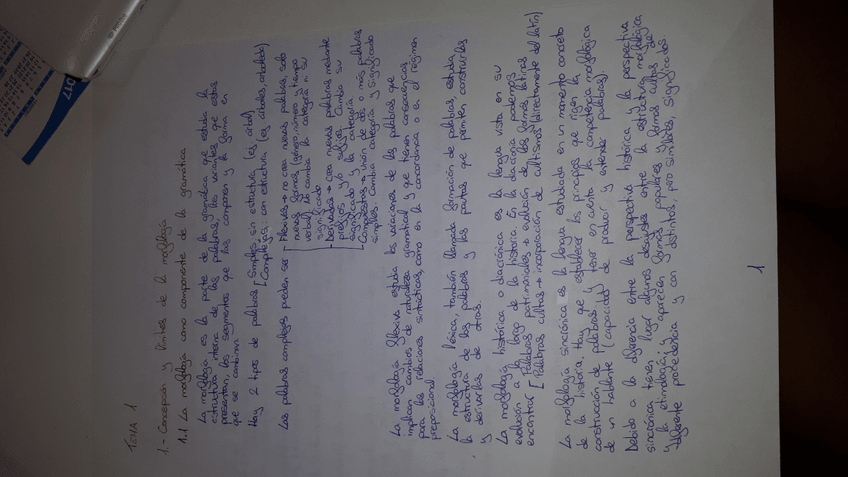 TEMA 1
1.- Concepción y límites de la morfología
1.1 La morfología como componente de la gramática
La morfología es la parte de la gramática que estudia la
estructura interna de las palabras, las variantes que estas
presentan, los segmentos que las componen y la forma en
que se combinan.
Hay 2 tipos de palabras [Simples, sin estructura (ej: árbol)
[Complejas, con estructura (ej: árboles, arbolado)
Las palabras complejas pueden ser [Flexivas → no crea nuevas palabras, solo
nuevas formas (género, número y tiempo
verbal). No cambia la categoría ni su
significado
Derivadas → crea nuevas palabras mediante
prefijos y/o sufijos. Cambia su
significado y la categoría
Compuestas → unión de dos o más palabras
simples. Cambia categoría y significado
La morfología flexiva estudia las variaciones de las palabras que
implican cambios de naturaleza gramatical y que tienen consecuencias
para las relaciones sintácticas, como en la concordancia o en el régimen
preposicional
La morfología léxica, también llamada formación de palabras, estudia
la estructura de las palabras y las pautas que permiten construirlas
y derivarlas de otras.
La morfología histórica o diacrónica es la lengua vista en su
evolución a lo largo de la historia. En la diacronía podemos
encontrar [Palabras patrimoniales → evolución de las formas latinas
[Palabras cultas → incorporación de cultismos (directamente del latín)
La morfología sincrónica es la lengua estudiada en un momento concreto
de la historia. Hay que establecer los principios que rigen la
construcción de palabras y tener en cuenta la competencia morfológica
de un hablante (capacidad de producir y entender palabras).
Debido a la diferencia entre la perspectiva histórica y la perspectiva
sincrónica tienen lugar algunos desajustes entre la estructura morfológica
y la etimología y aparecen formas populares y formas cultas de
diferente procedencia y con distintos, pero similares, significados
1
2017